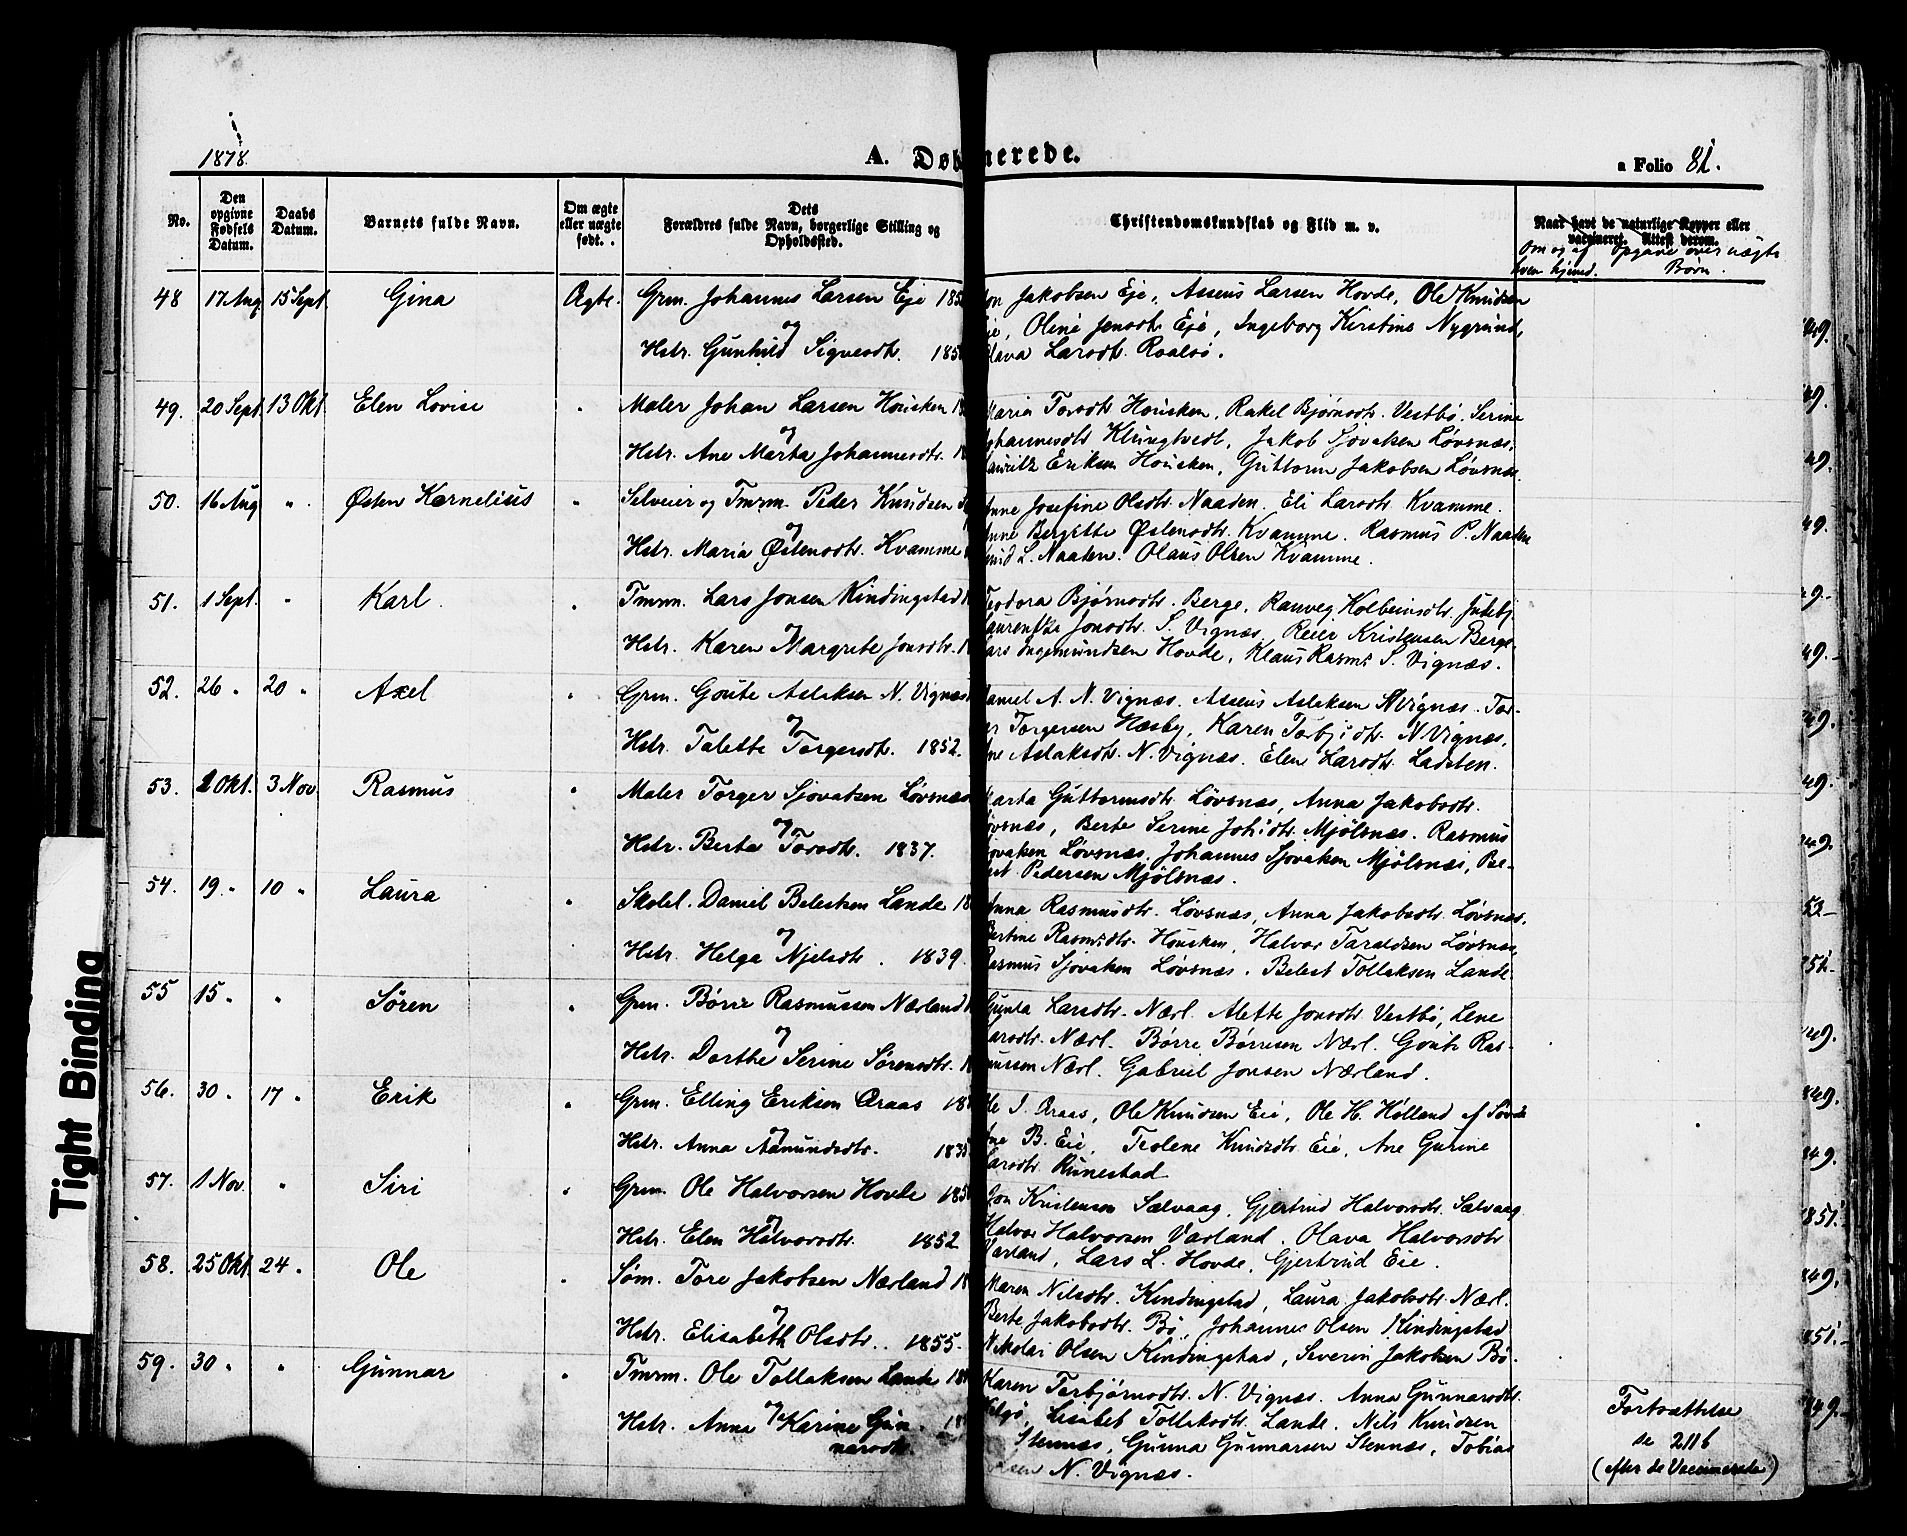 1878.
A. Døb
nerede.
a Folio 81.
No.
Den opgivne Fødsels Datum.
Daabs Datum.
Barnets fulde Navn.
Om ægte eller uægte født.
Dets Forældres fulde Navn, borgerlige Stilling og Opholdssted.
Christendomskundskab og Flid m. v.
Naar havt de naturlige Kopper eller vaccineret. Attest derom.
Om og af hven hjemd.
Opgave over uægte Børn.
48 17 Aug. 15 Sept. Gina Ægte. Grm. Johannes Larsen Eje 185
og
Hstr. Gunhild Sigvesdtr. 185
on Jakobsen Eje, Asseus Larsen Hovde, Ole Knudsen
je, Oline Jensdtr. Eje, Ingeborg Kirstine Nygrund,
lava Larsdtr. Roalsø.
49. 20 Sept. 13 Okt. Elen Lovise " Maler Johan Larsen Housken
og
Hstr. Ane Marta Johannesdtr.
Maria Torsdtr. Housken, Rakel Bjørnsdtr. Vestbø, Serine
ohannesdtr. Klungtvedt, Jakob Sjovatsen Løvsnæs,
auritz Eriksen Housken, Guttorm Jakobsen Løvsnæs.
50. 16 Aug. " Østen Kornelius " Selveier og Tmrm. Peder Knudsen
og
Hstr. Maria Østensdtr. Kvamme
nne Josefine Olsdtr. Naaden. Eli Larsdtr. Kvamme.
nne Bergitte Østensdtr. Kvamme. Rasmus P. Naaden
L. Naaden. Olaus Olsen Kvamme.
51. 1 Sept. " Karl. " Tmrm. Lars Jonsen Kindingstad
og
Hstr. Karen Margrete Jonsdtr.
Teodora Bjørnsdtr. Berge, Ranveg Kolbeinsdtr.
Jonsdtr. S. Vignæs, Reier Kristensen Berge.
ars Ingemundsen Hovde, Klaus Rasm: S. Vignæs.
52. 26 " 20 " Axel " Grm. Goute Aslaksen N. Vignæs
og
Hstr. Talette Torgersdtr. 1852.
Daniel A. N. Vignæs. Asseus Aslaksen N Vignæs. Tor-
Torgersen Næsby, Karen Torbj:dtr. N Vignæs,
ne Aslaksdtr. N. Vignæs. Elen Larsdtr. Ladsten.
53. 2 Okt. 3 Nov. Rasmus " Maler Torger Sjovatsen Løvsnæs
og
Hstr. Berta Torsdtr. 1837.
Marta Guttormsdtr. Løvsnæs, Anna Jakobsdtr.
øvsnæs, Berte Serine Joh:dtr. Mjölsnæs. Rasmus
jovatsen Løvsnæs. Johannes Sjovatsen Mjölsnæs, Be-
Pedersen Mjölsnæs.
54. 19. " 10 " Laura " Skolel. Daniel Belestsen Lande 18
og
Hstr. Helga Njelsdtr. 1839.
Anna Rasmusdtr. Løvsnæs, Anna Jakobsdtr. Løvsnæs,
Bertine Rasm:dtr. Housken, Halvor Taraldsen Løvsnæs,
Rasmus Sjovatsen Løvsnæs. Belest Tollaksen Lande
55 15 " " Sören " Grm. Börre Rasmussen Nærland
og
Hstr. Dorthe Serine Sörensdtr.
Gunla Larsdtr. Nærl. Alette Jonsdtr Vestbö, Lene
arsdtr. Nærl. Börre Börresen Nærl. Goute Ras-
mussen Nærl. Gabriel Jonsen Nærland.
56. 30 " 17 " Erik " Grm. Elling Eriksen Araas 18
og
Hstr. Anna Asmundsdtr. 1835
Ole I. Araas, Ole Knudsen Eie, Ole H. Hölland af Sövde
ne B. Eie, Teolene Knudsdtr. Eie, Ane Gurine
Larsdtr. Runestad
57. 1 Nov. " Siri " Grm. Ole Halvorsen Hovde 185
og
Hstr. Elen Halvorsdtr. 1852
Jon Kristensen Sælvaag, Gjertrud Halvorsdtr. Sælvaag
Halvor Halvorsen Varland. Olava Halvorsdtr
Varland, Lars L. Hovde, Gjertrud Eie.
58. 25 Okt. 24 " Ole " Søm. Tore Jakobsen Nærland 18
og
Hstr. Elisabeth Olsdtr. 1855.
Maren Nilsdtr. Kindingstad, Laura Jakobsdtr. Nærl.
Berte Jakobsdtr. Bö, Johannes Olsen Kindingstad
Nikolai Olsen Kindingstad, Severin Jakobsen Bö.
59. 30 " " Gunnar " Tmrm. Ole Tollaksen Lande 18
og
Hstr. Anna Karine Gun-
narsdtr.
Karen Torbjørnsdtr. N. Vignæs. Anna Gunnarsdtr.
Lisabet Tollaksdtr. Lande. Nils Knudsen
Stennæs, Gunna Gunnarsen Stennæs, Tobias
sen N. Vignæs.
Fortsættelse
se 211b
(efter de Vaccinerede)
Tight Binding